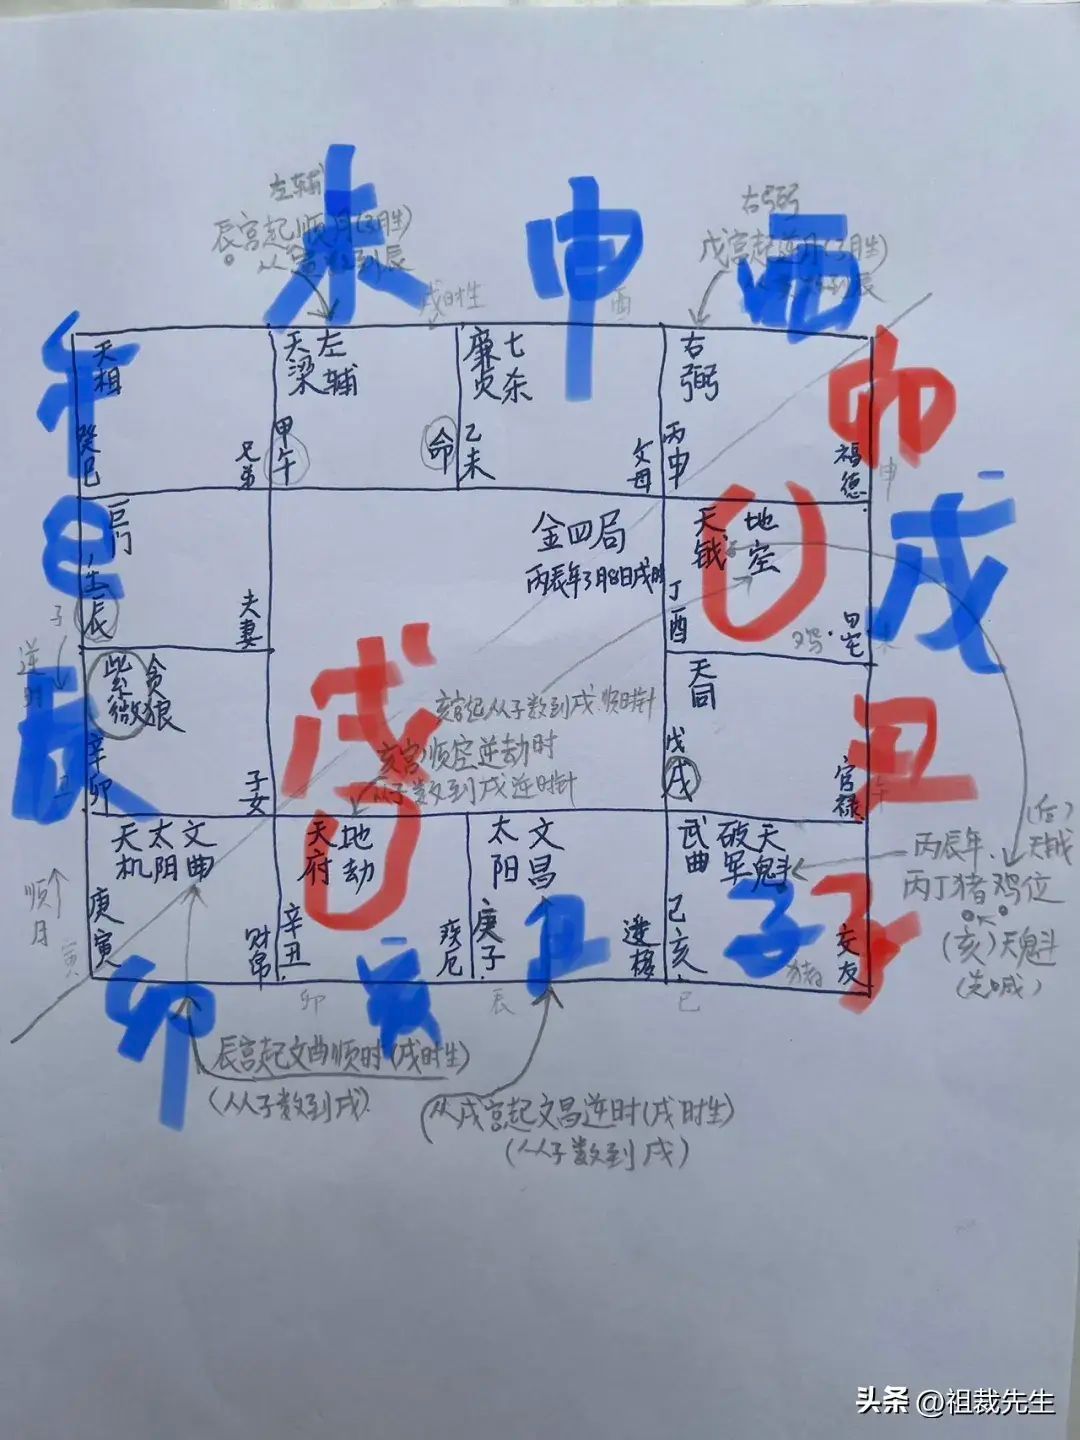 左辅
辰宫起顺月(3月生)
从寅数到辰
右弼
戌宫起逆月(3月生)
从寅数到辰
未
申
酉
戌时生
酉
午
巳
辰
卯
亥
丑
子
戌
卯
丑
子
戌
天相
癸巳
兄弟
天梁
左辅
甲午
命
廉贞
七杀
乙未
父母
右弼
丙申
福德
申
巨门
壬辰
夫妻
金四局
丙辰年3月8日戌时
天钺
地空
丁酉
田宅
鸡
未
子
逆时
丑
紫微
贪狼
辛卯
子女
亥宫起从子数到戌.顺时针
亥宫顺空逆劫时
从子数到戌逆时针
天同
戊戌
官禄
午
天机
太阳
文曲
庚寅
财帛
天府
地劫
辛丑
疾厄
太阳
文昌
庚子
迁移
武曲
破军
天魁
己亥
交友
猪
顺月
寅
卯
辰
巳
(后)
丙辰年.天钺
丙丁猪鸡位
(亥)天魁
(先喊)
辰宫起文曲顺时(戌时生)
(从子数到戌)
从戌宫起文昌逆时(戌时生)
(从子数到戌)
头条 @祖裁先生